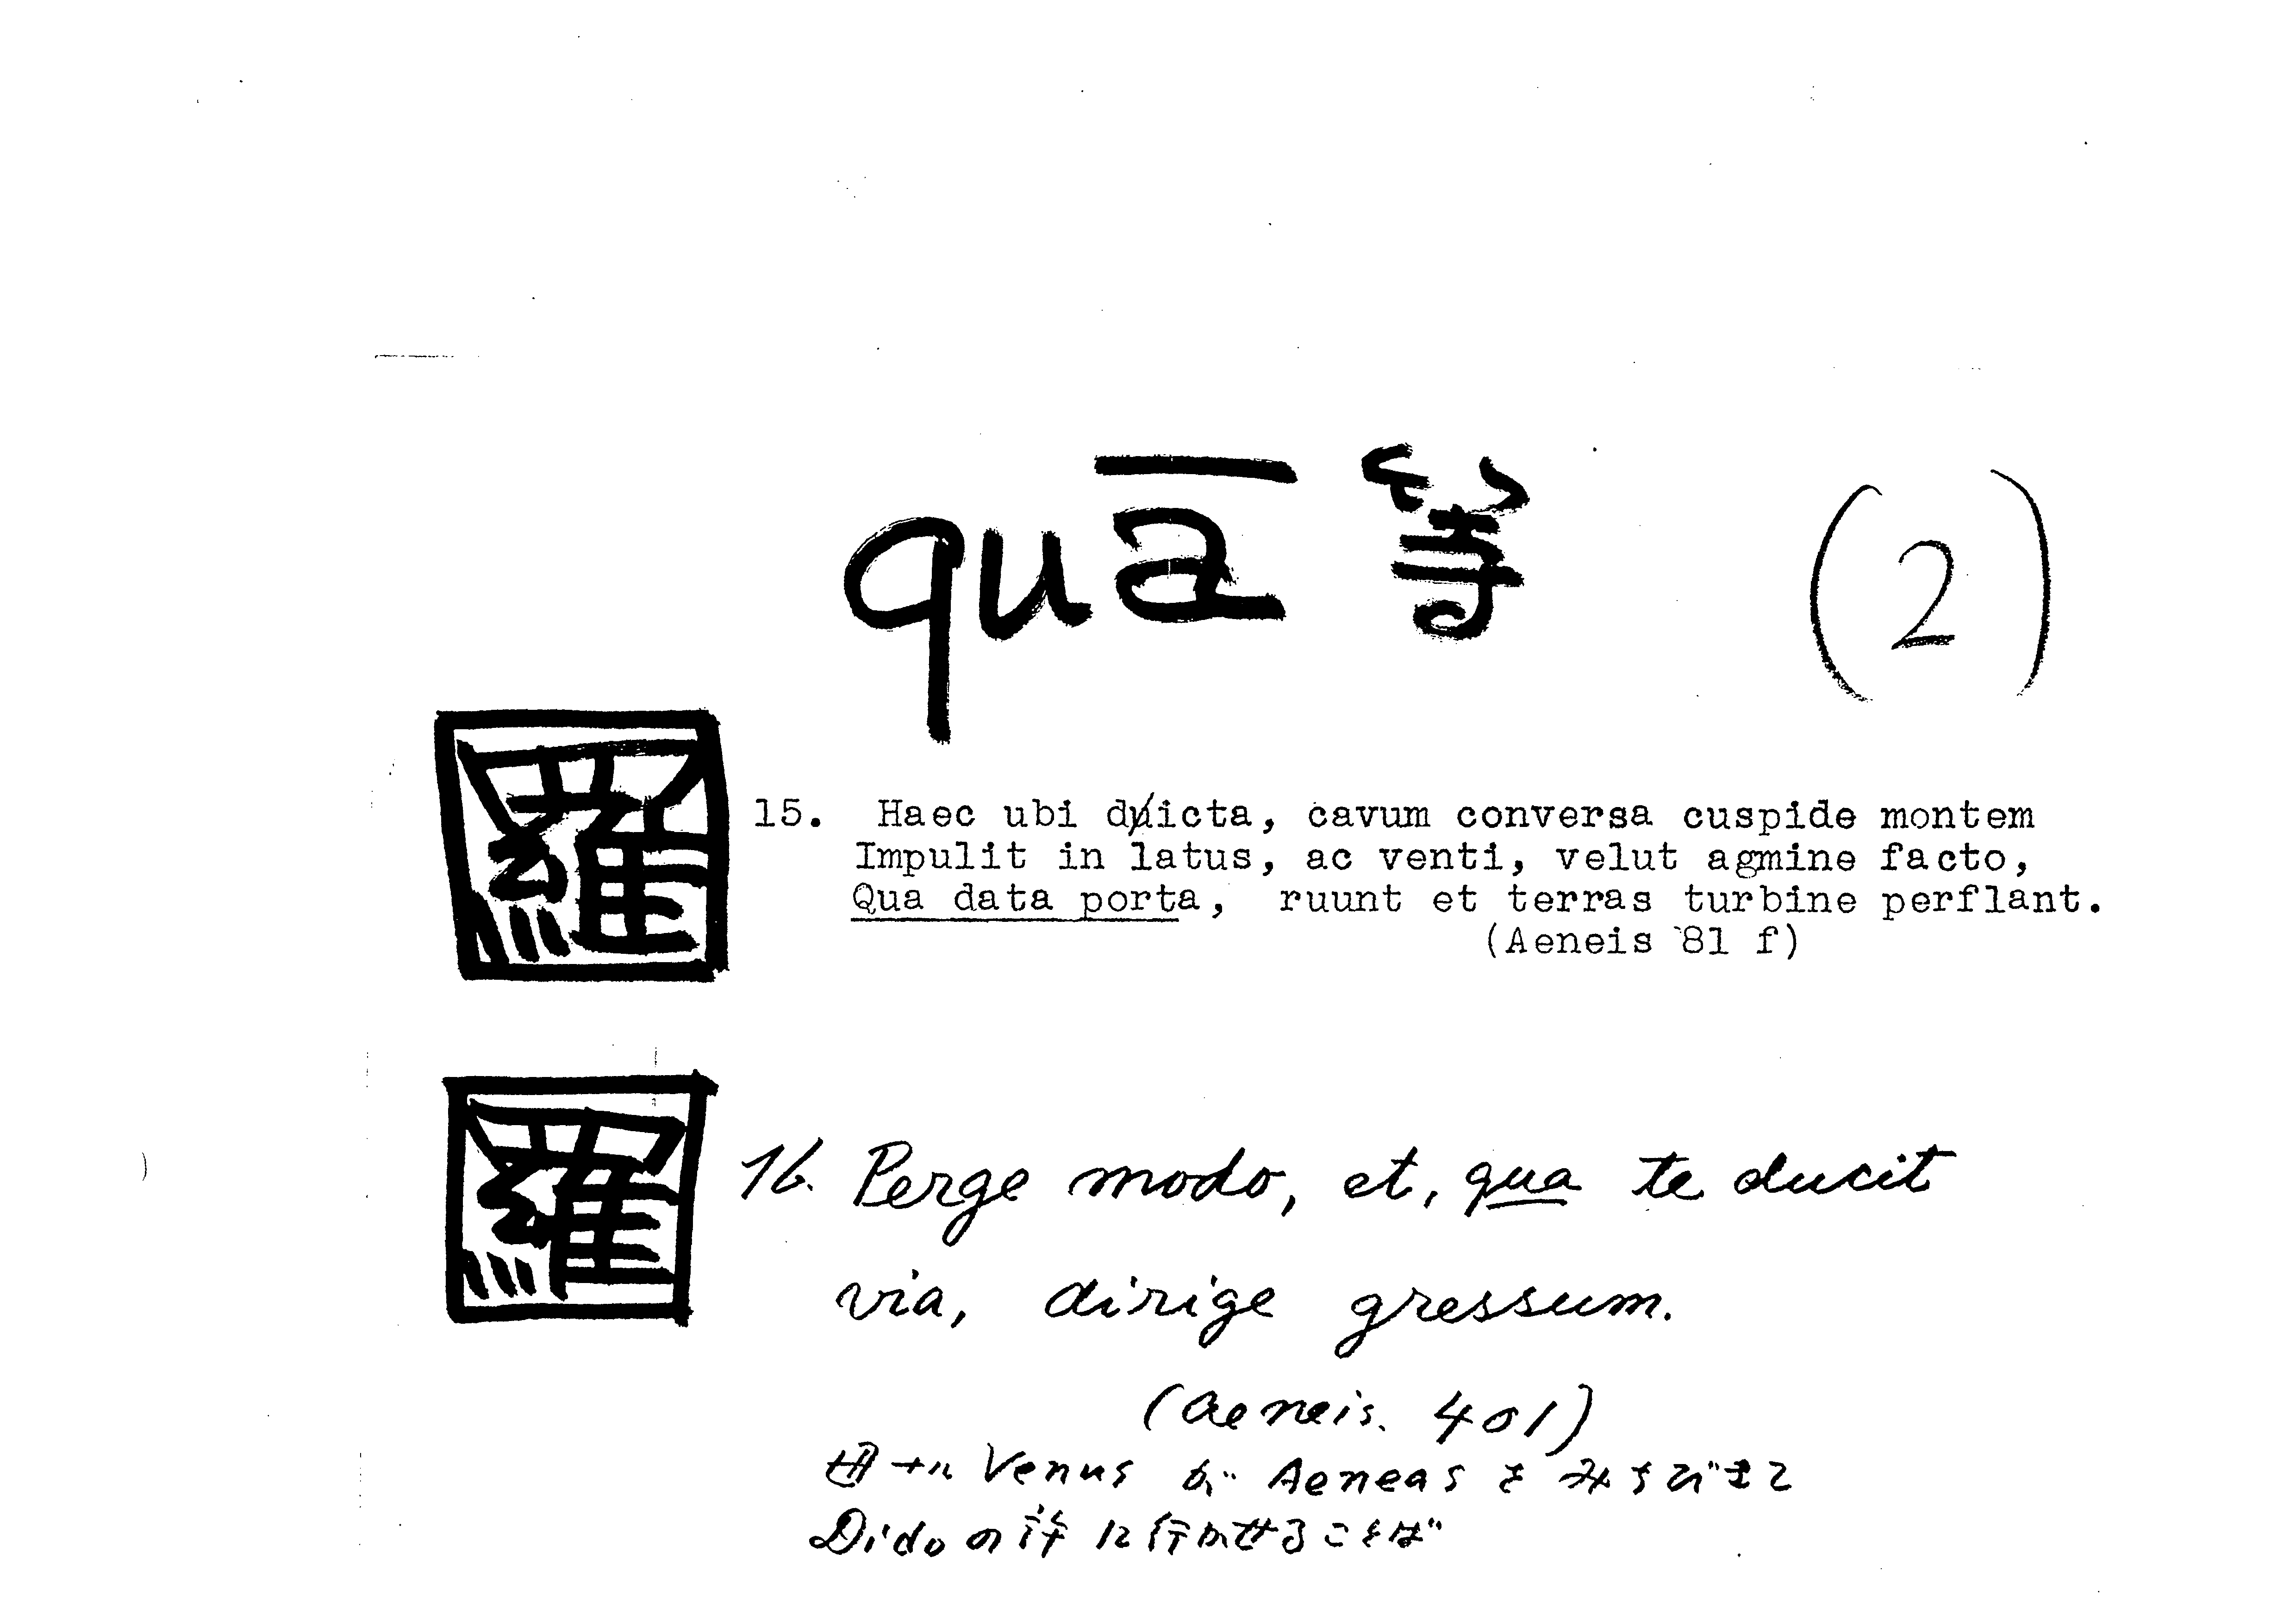 quā 等 (2)
羅
15. Haec ubi dicta, cavum conversa cuspide montem
Impulit in latus, ac venti, velut agmine facto,
Qua data porta, ruunt et terras turbine perflant.
(Aeneis 81 f)
羅
16. Perge modo, et, qua te ducit
via, dirige gressum.
(Aeneis. 401)
母なる Venus が Aeneas を みちびきて
Dido の許に行かせることば